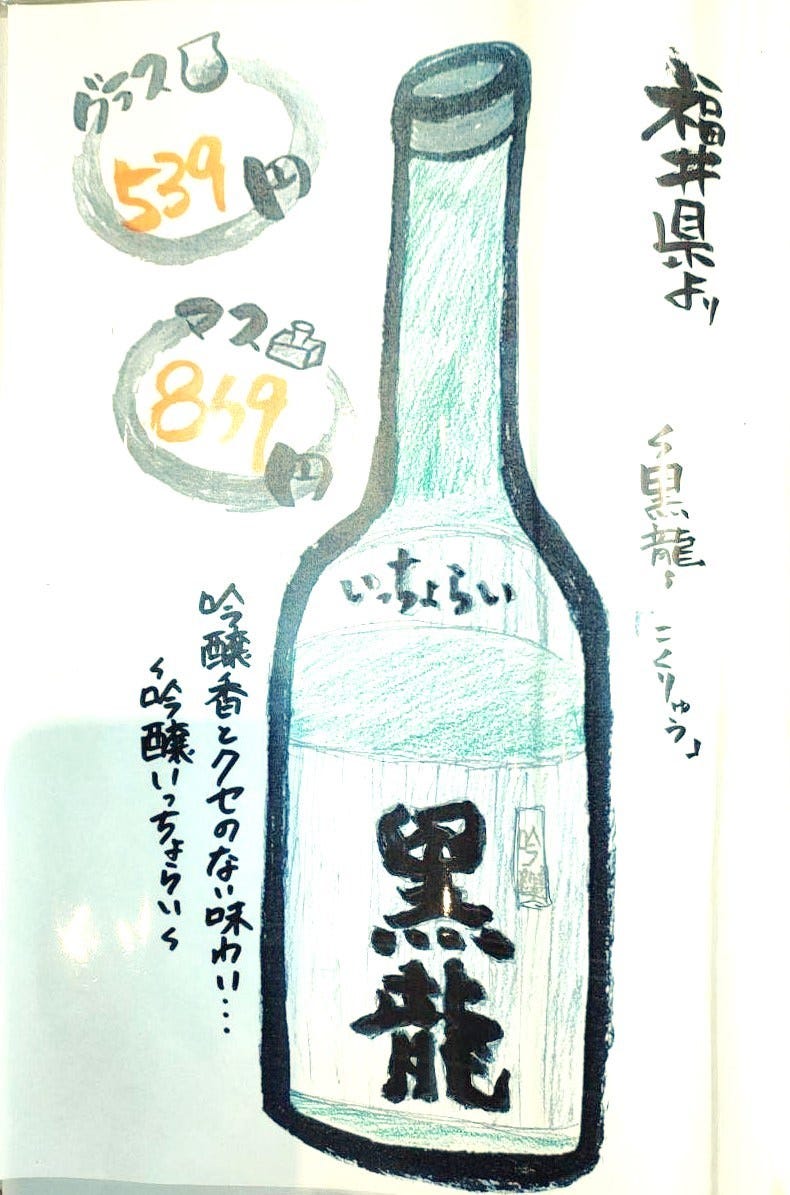 福井県より
~黒龍~
「こくりゅう」
グラス
539円
マス
859円
いっちょらい
吟醸
黒龍
吟醸香とクセのない味わい...
~吟醸いっちょらい~